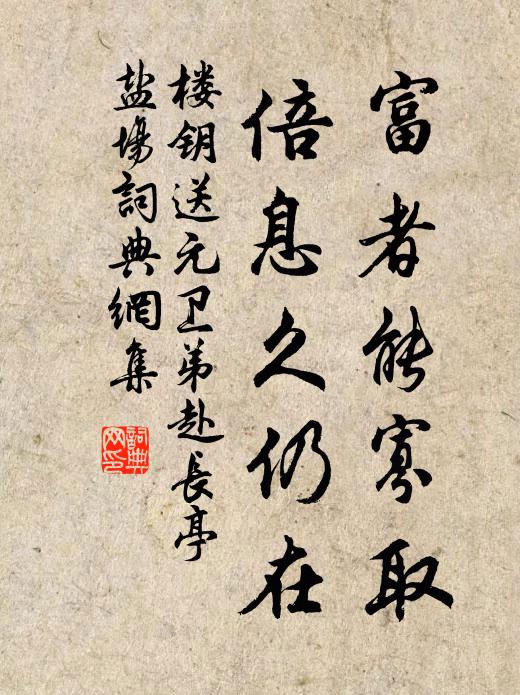 富者能寡取
倍息久仍在
楼钥送元卫弟赴长亭
盐场词典网集
詞典
网印